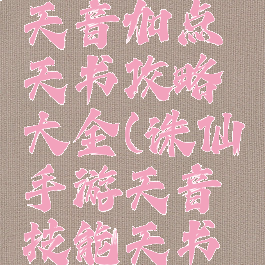 天音加点
天书攻略
大全(诛仙
手游天音
技能天书